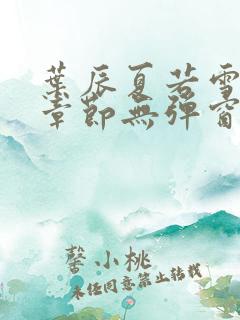 葉辰夏若雪
章節無彈窗
馨小桃
未經同意禁止轉載